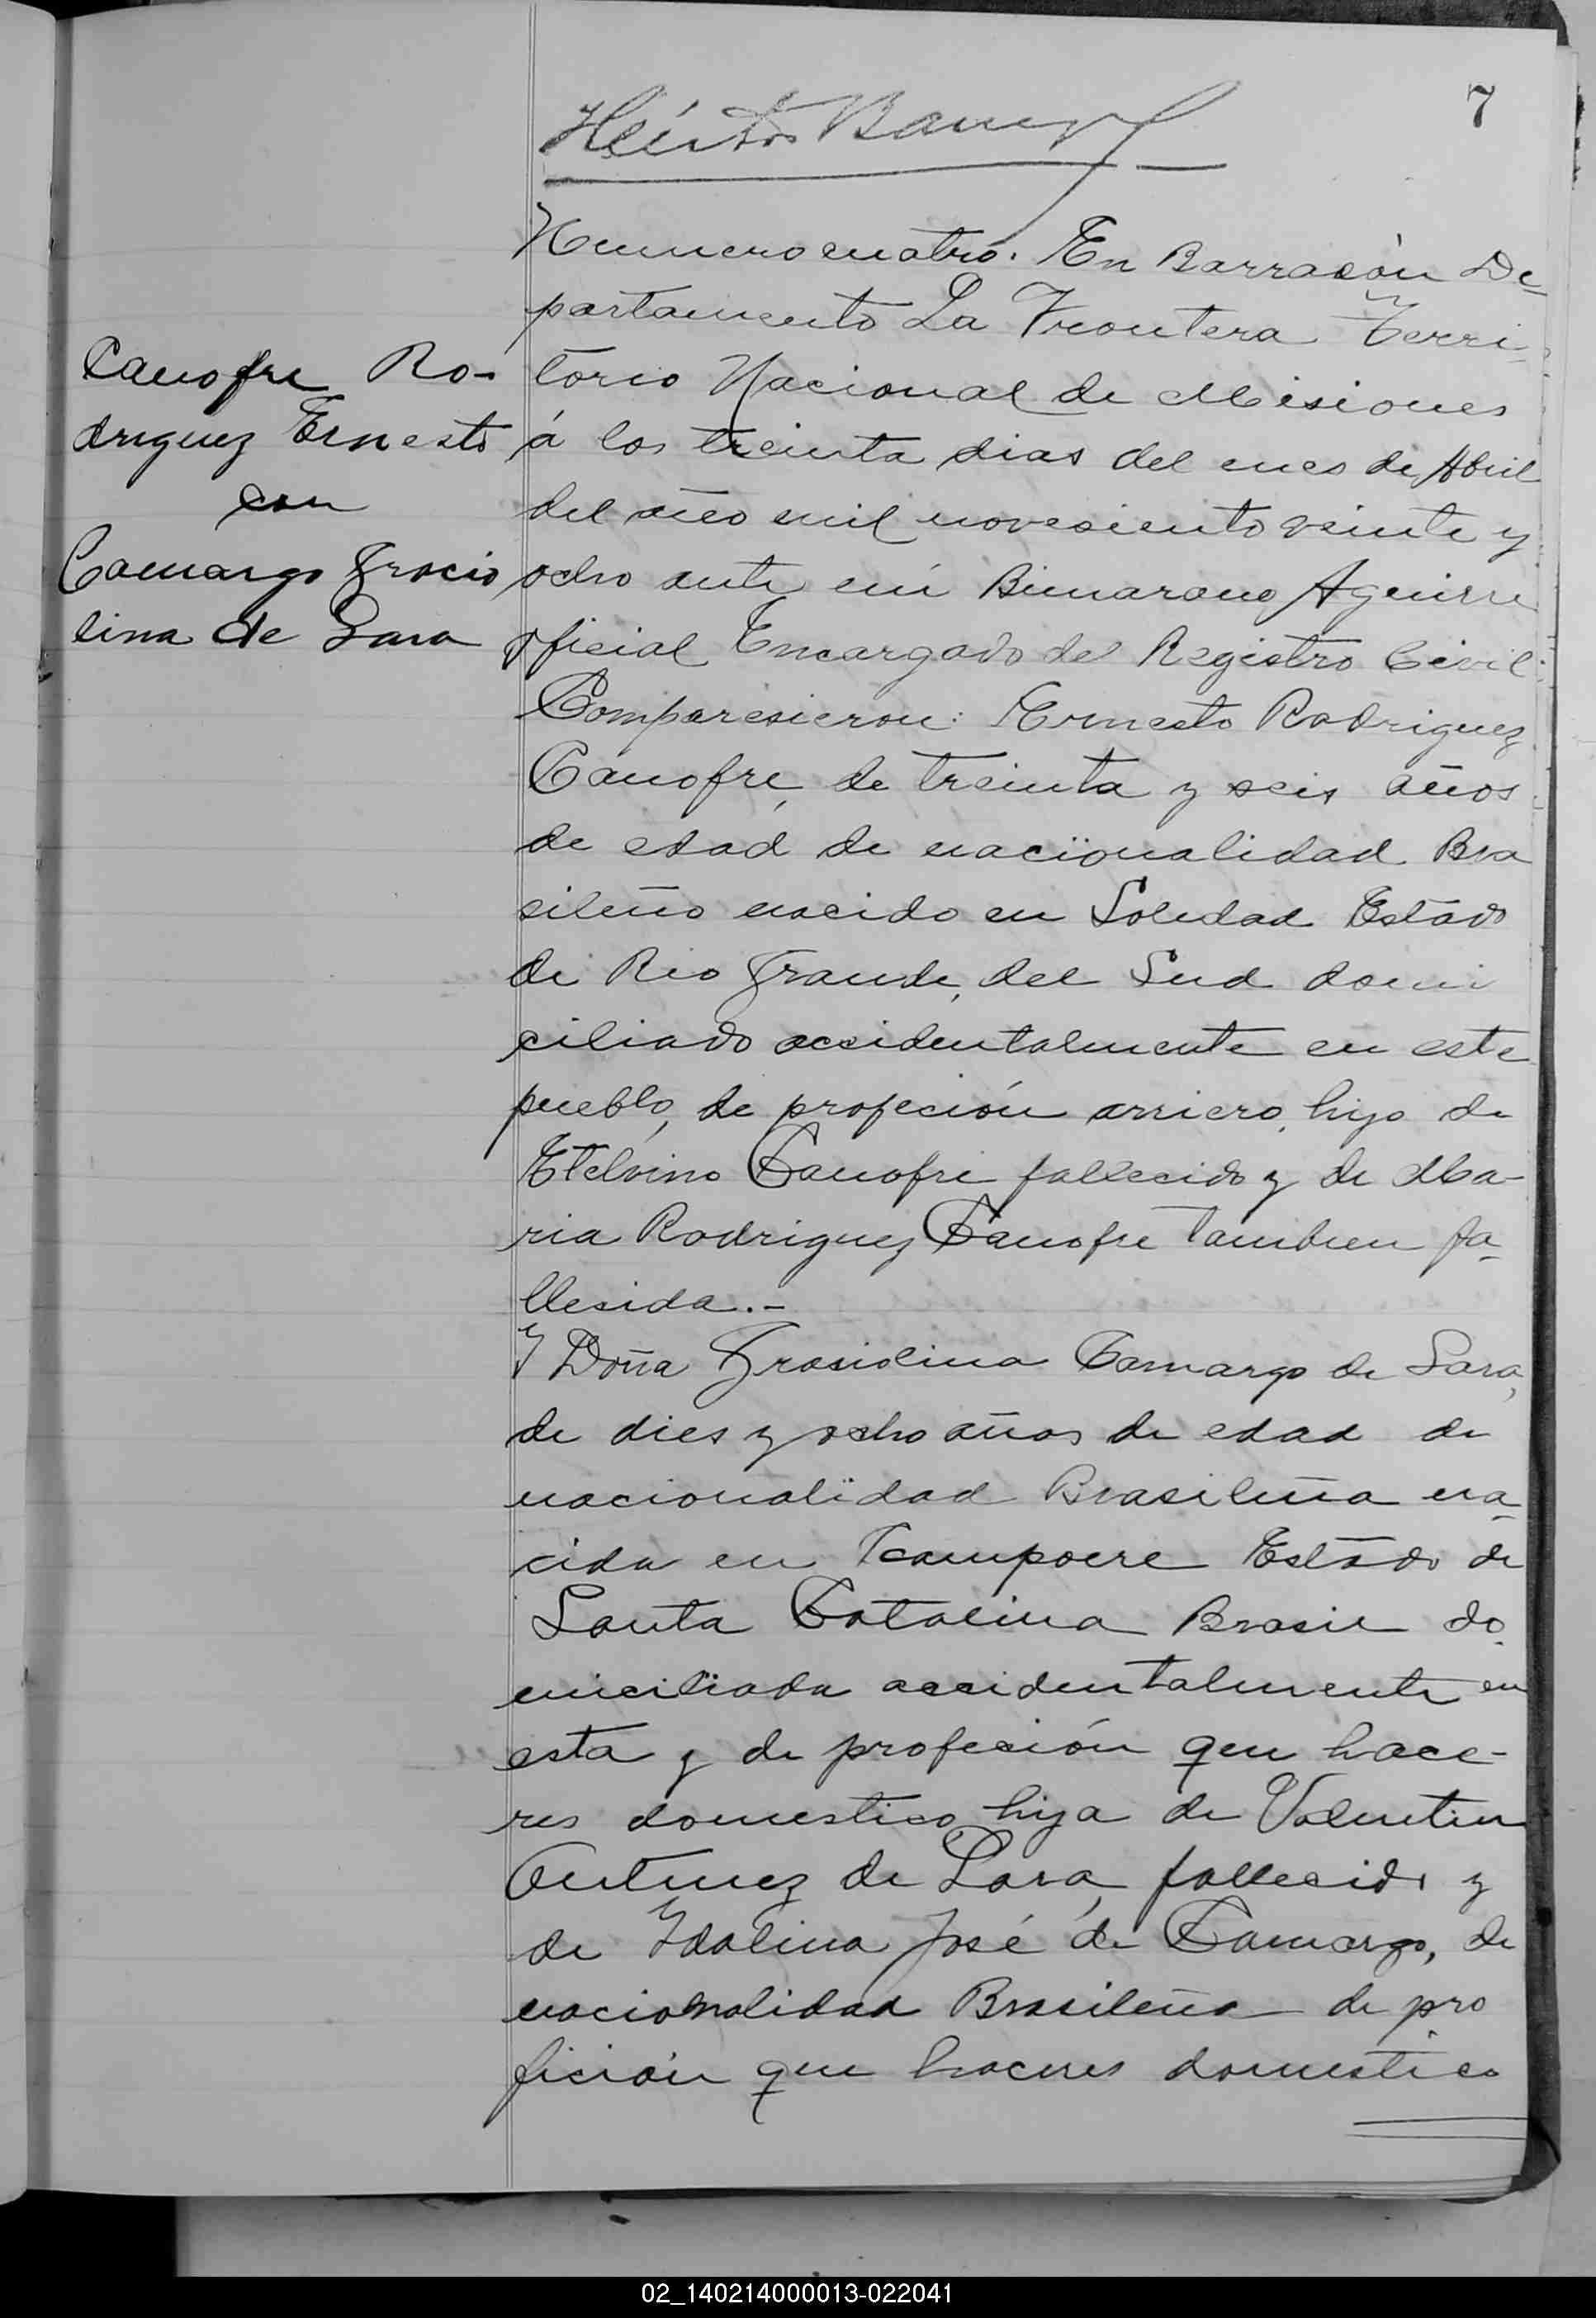 7
Héctor
Numero cuatro. En Barracón De-
partamento La Frontera Terri-
torio Nacional de Misiones
á los treinta dias del mes de Abril
del año mil novesiento veinte y
ocho ante mi Bimarano Aguirre
oficial Encargado del Registro Civil:
Comparesieron: Ernesto Rodriguez
Canofre, de treinta y seis años
de edad de nacionalidad Bra
sileño nacido en Soledad Estado
de Rio Grande, del Sud domi
ciliado accidentalmente en este
pueblo, de profeción arriero, hijo de
Etelvino Canofre fallecido y de Ma-
ria Rodriguez Canofre tambien fa-
llesida.-
Y Doña Grasiolina Camargo de Lara,
de dies y ocho años de edad de
nacionalidad Brasileña na-
cida en Campoere Estado de
Santa Catalina Brasil do-
miciliada accidentalmente en
esta y de profeción que hace-
res domestico hija de Valentin
Antunez de Lara, fallecido y
de Ydalina José de Camargo, de
nacionalidad Brasileña de pro
fición que haceres domestico
Canofre Ro-
driguez Ernesto
con
Camargo Grocio
lina de Lara
02_140214000013-022041